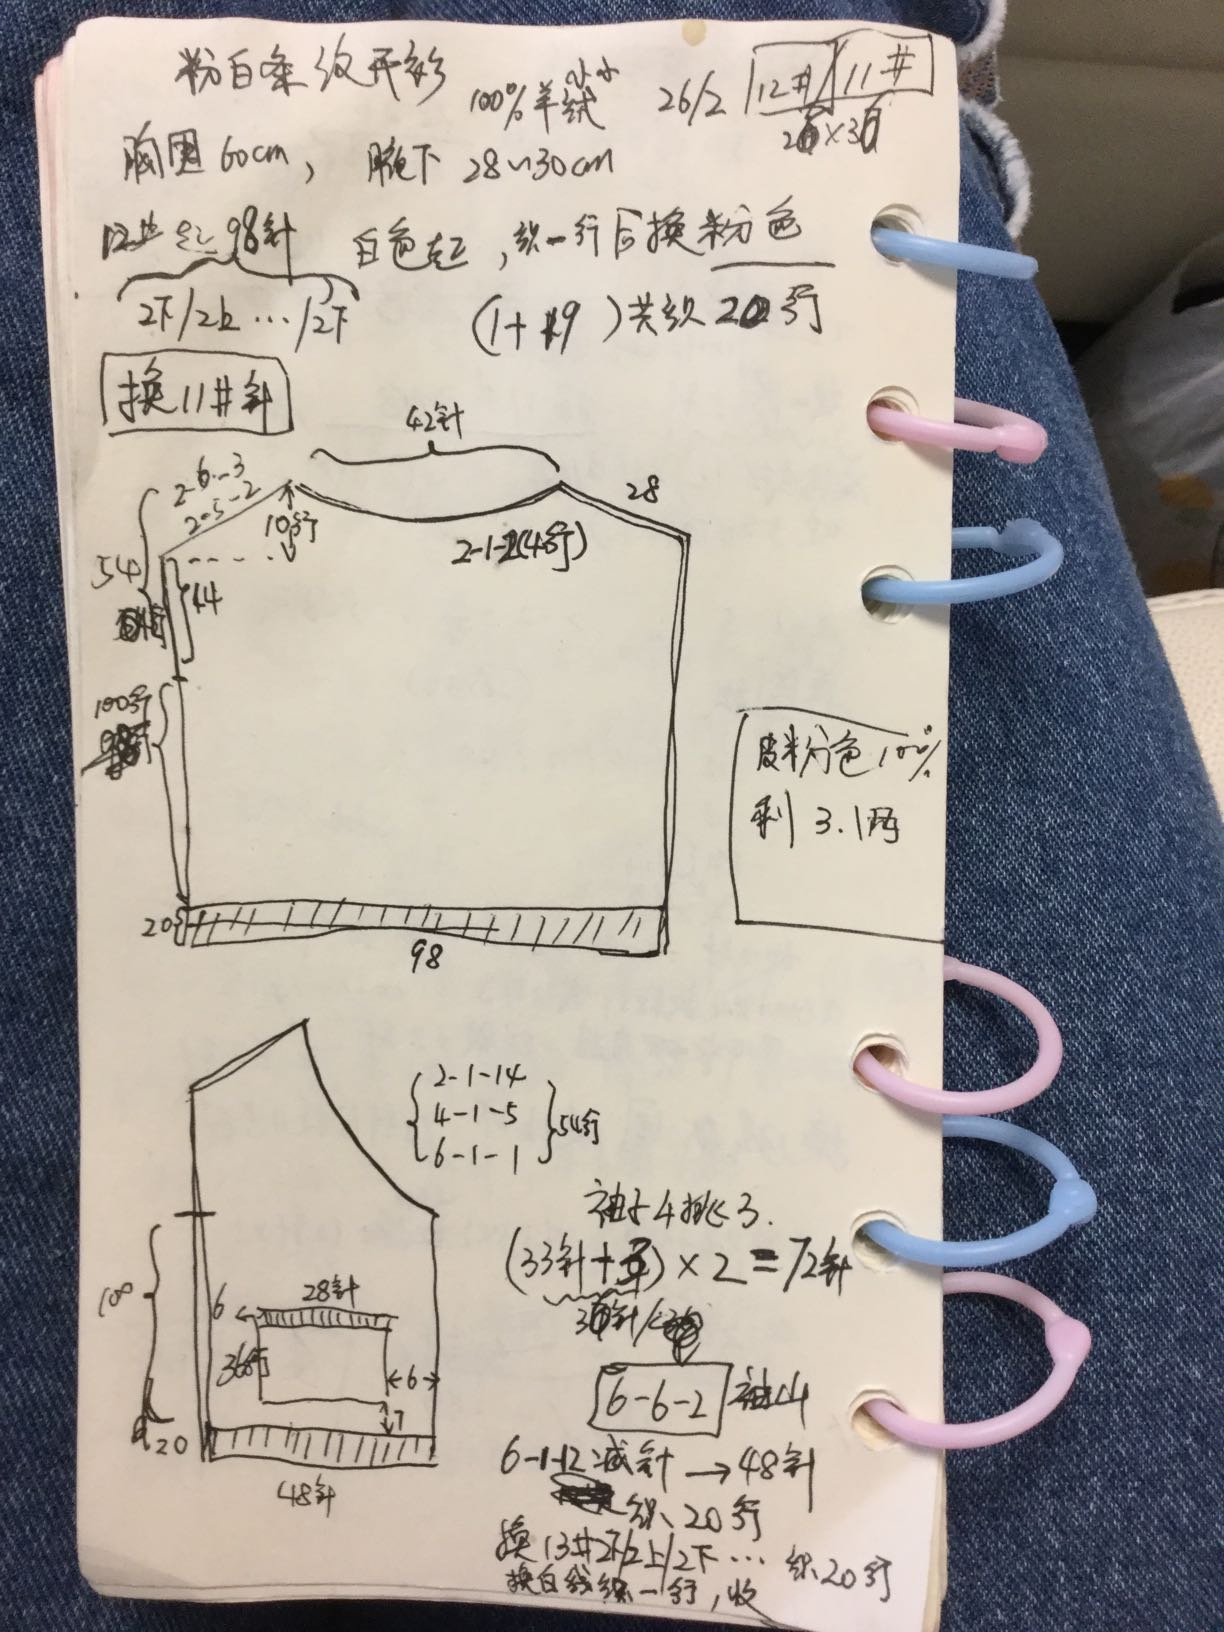 粉白条纹开衫
100%羊绒
26/2 12# 11#
胸围60cm, 腋下 28~30cm
98针 白色起, 织一行后换粉色
2下/2上…/2下 (1+19)共织20行
换11#针
42针
2-6-3
2-5-2
10行
28
2-1-2(4行)
54
44
100行
皮粉色100%
剩 3.1两
20
98
2-1-14
4-1-5
6-1-1
54行
袖子4挑3.
(33针+3)×2=72针
36针
100
6
28针
36行
6
7
6-6-2 袖山
20
48针
6-1-12减针→48针
织20行
换13#2下/2上/2下… 织20行
换白线织一行,收